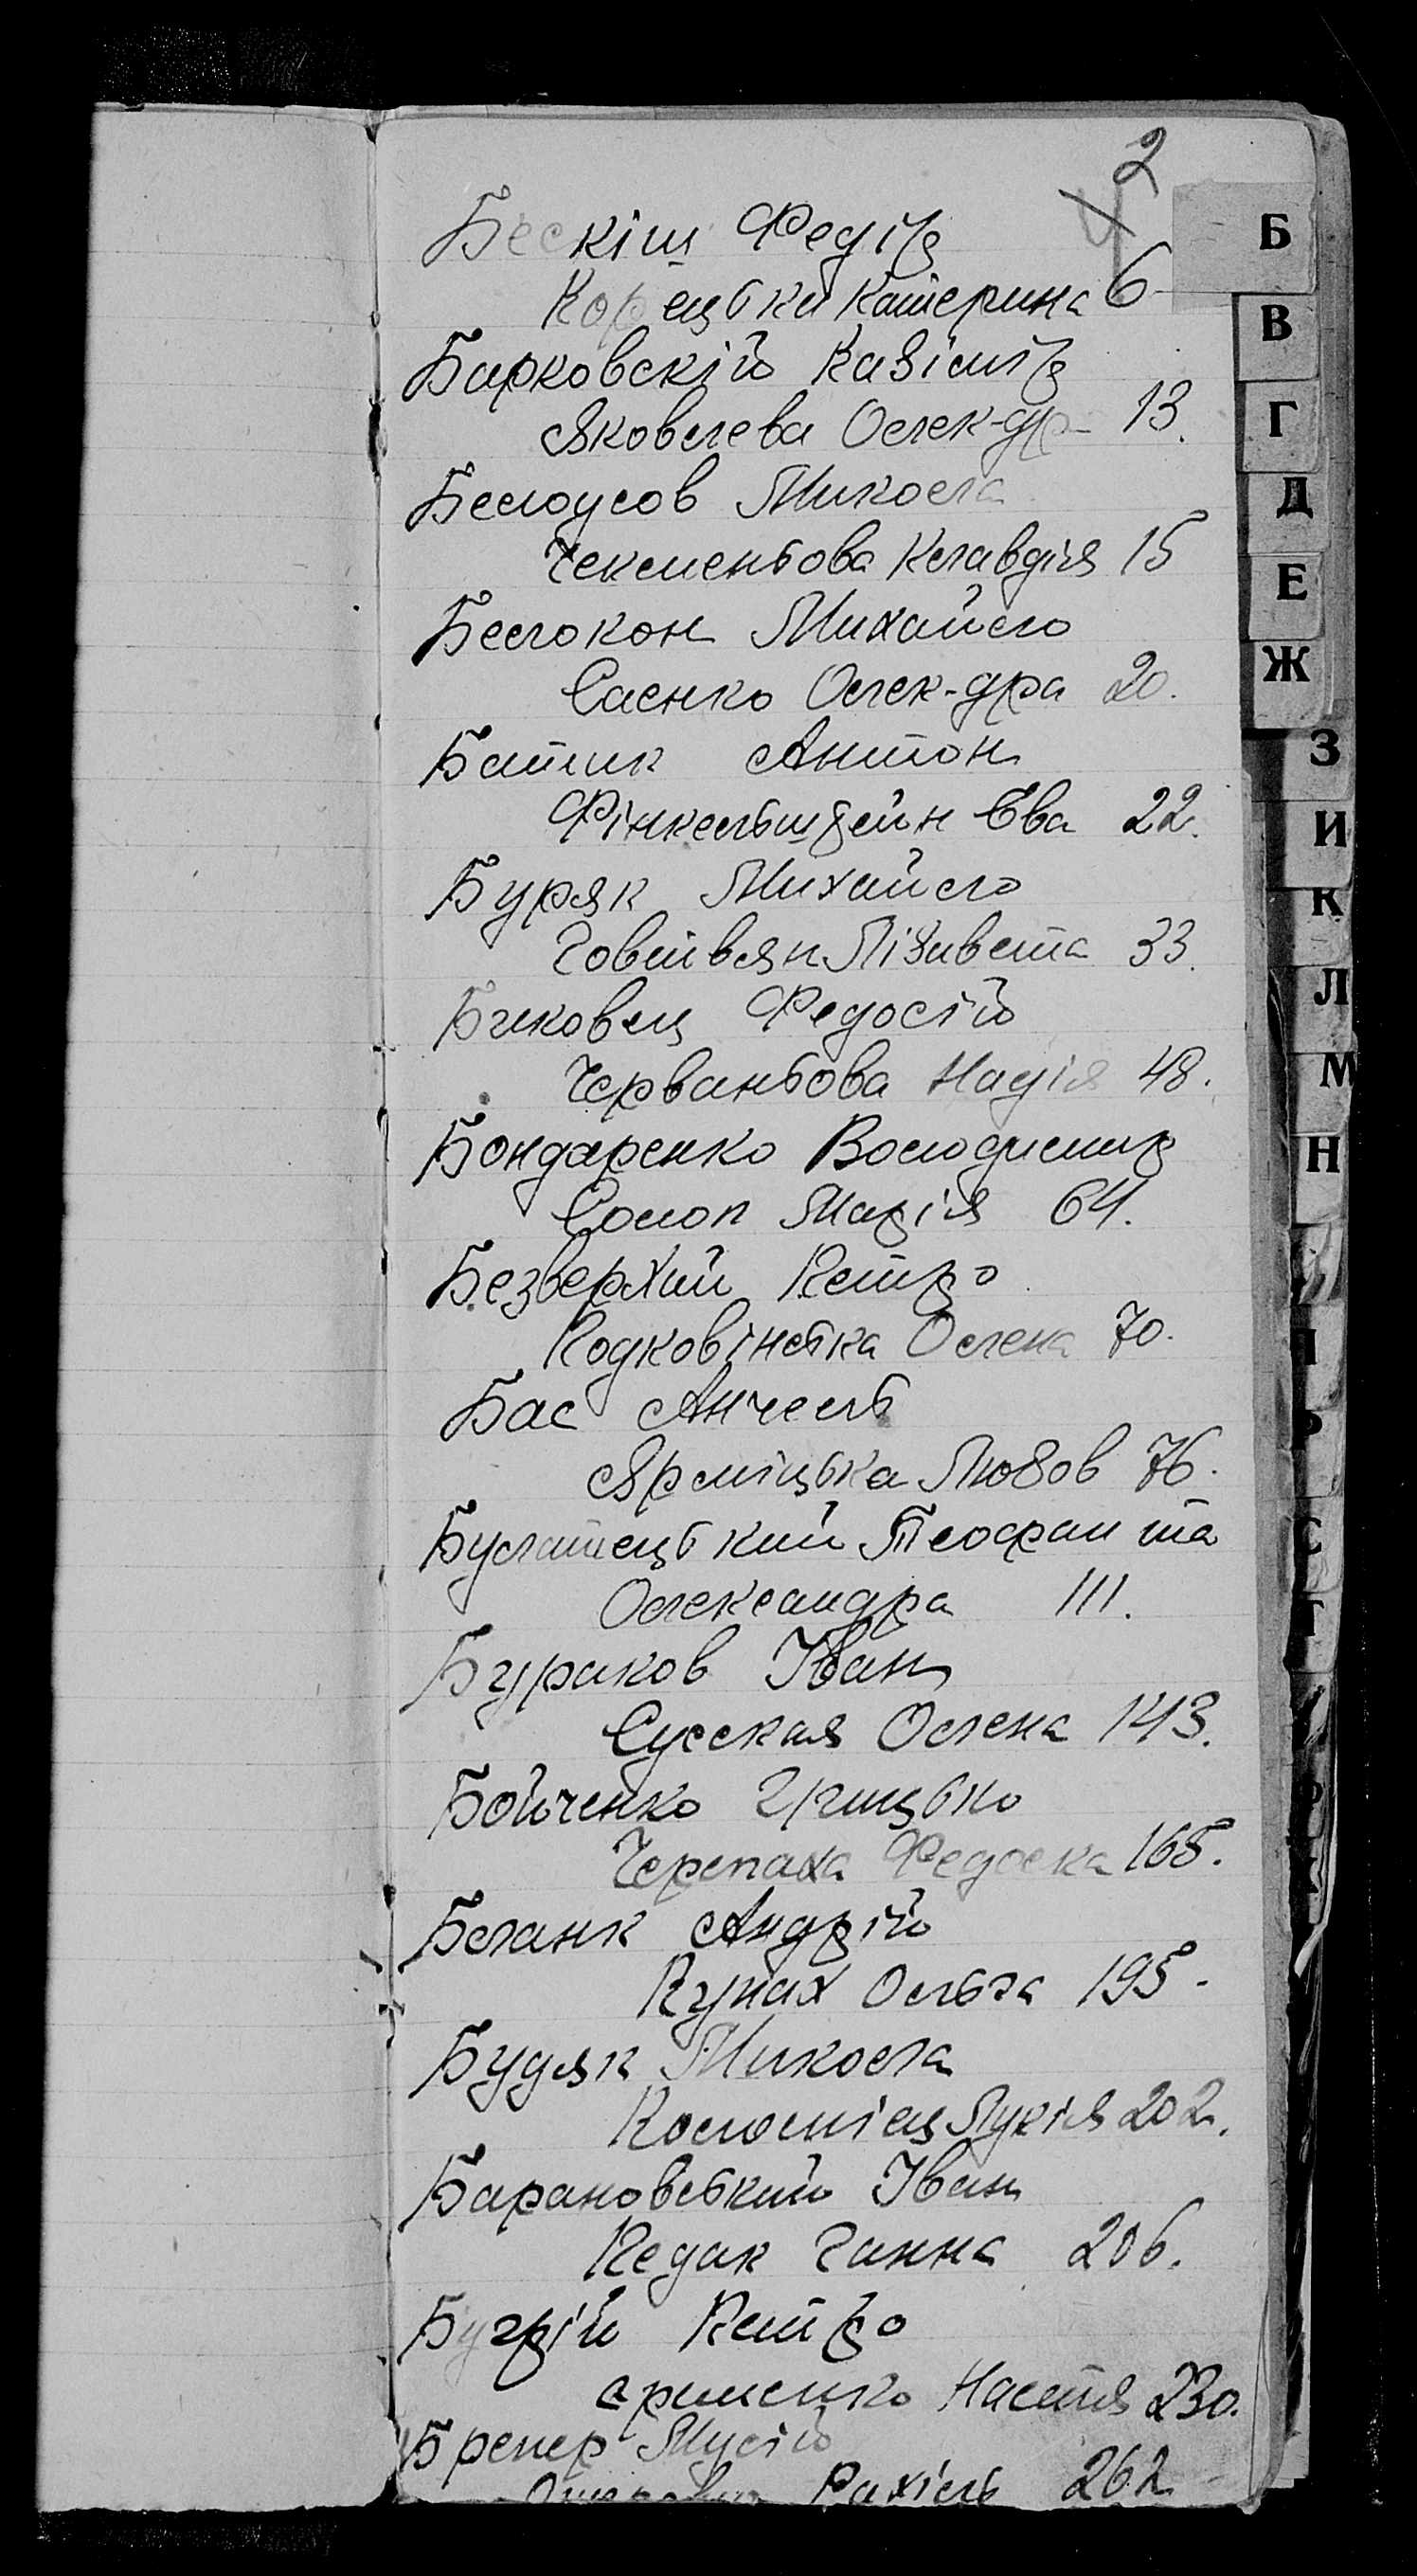 2
Бескіш Федір
Корецьки Катерина 6
Барковскій Казімір
Яковлева Олек-др 13.
Белоусов Микола
Чекменьова Клавдія 15
Белокон Михайло
Саенко Олек-дра 20.
Батик Антон
Фінкельштейн Ева 22.
Буряк Михайло
Говтвян Лізивета 33.
Биковец Федосій
Черваньова Надія 48.
Бондаренко Володимир
Солоп Марія 64.
Безверхий Петро
Подковінська Олена 70.
Бас Анчель
Ярміцька Любов 76.
Булатецький Теофан та
Олександра 111.
Бураков Іван
Сусская Олена 143.
Бойченко Грицько
Черепаха Федоска 165.
Бланк Андрій
Кунах Ольга 195.
Будяк Микола
Коломієц Лукія 202.
Барановський Іван
Педак Ганна 206.
Бугрій Петро
Настя 230.
Бренер Мусій
Рахіль 262
Б
В
Г
Д
Е
Ж
З
И
К
Л
М
Н
П
Р
С
Т